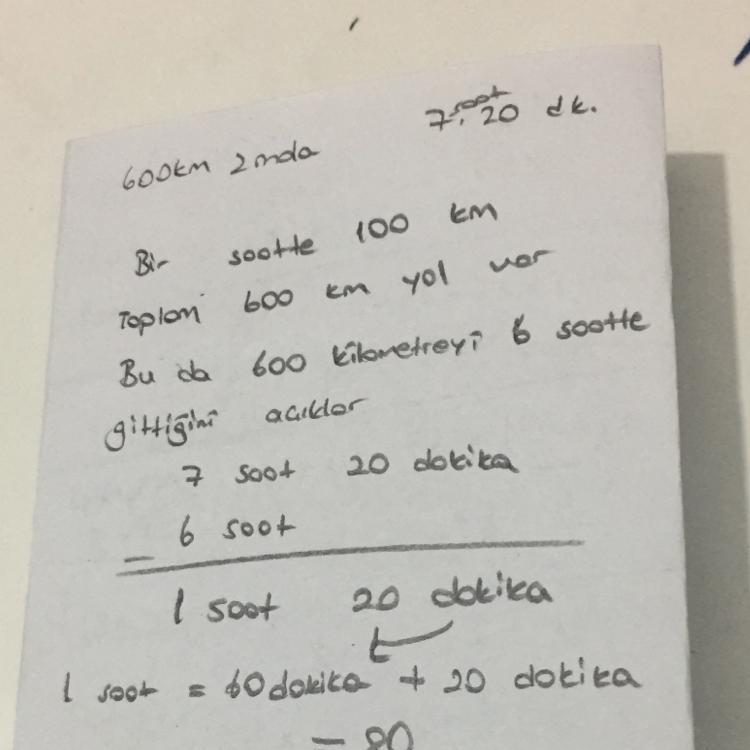 7 saat, 20 dk.
600km 2 mola
Bir saatte 100 km
Toplam 600 km yol var
Bu da 600 kilometreyi 6 saatte
gittiğini açıklar
7 saat 20 dakika
- 6 saat
1 saat 20 dakika
1 saat = 60 dakika + 20 dakika
= 80